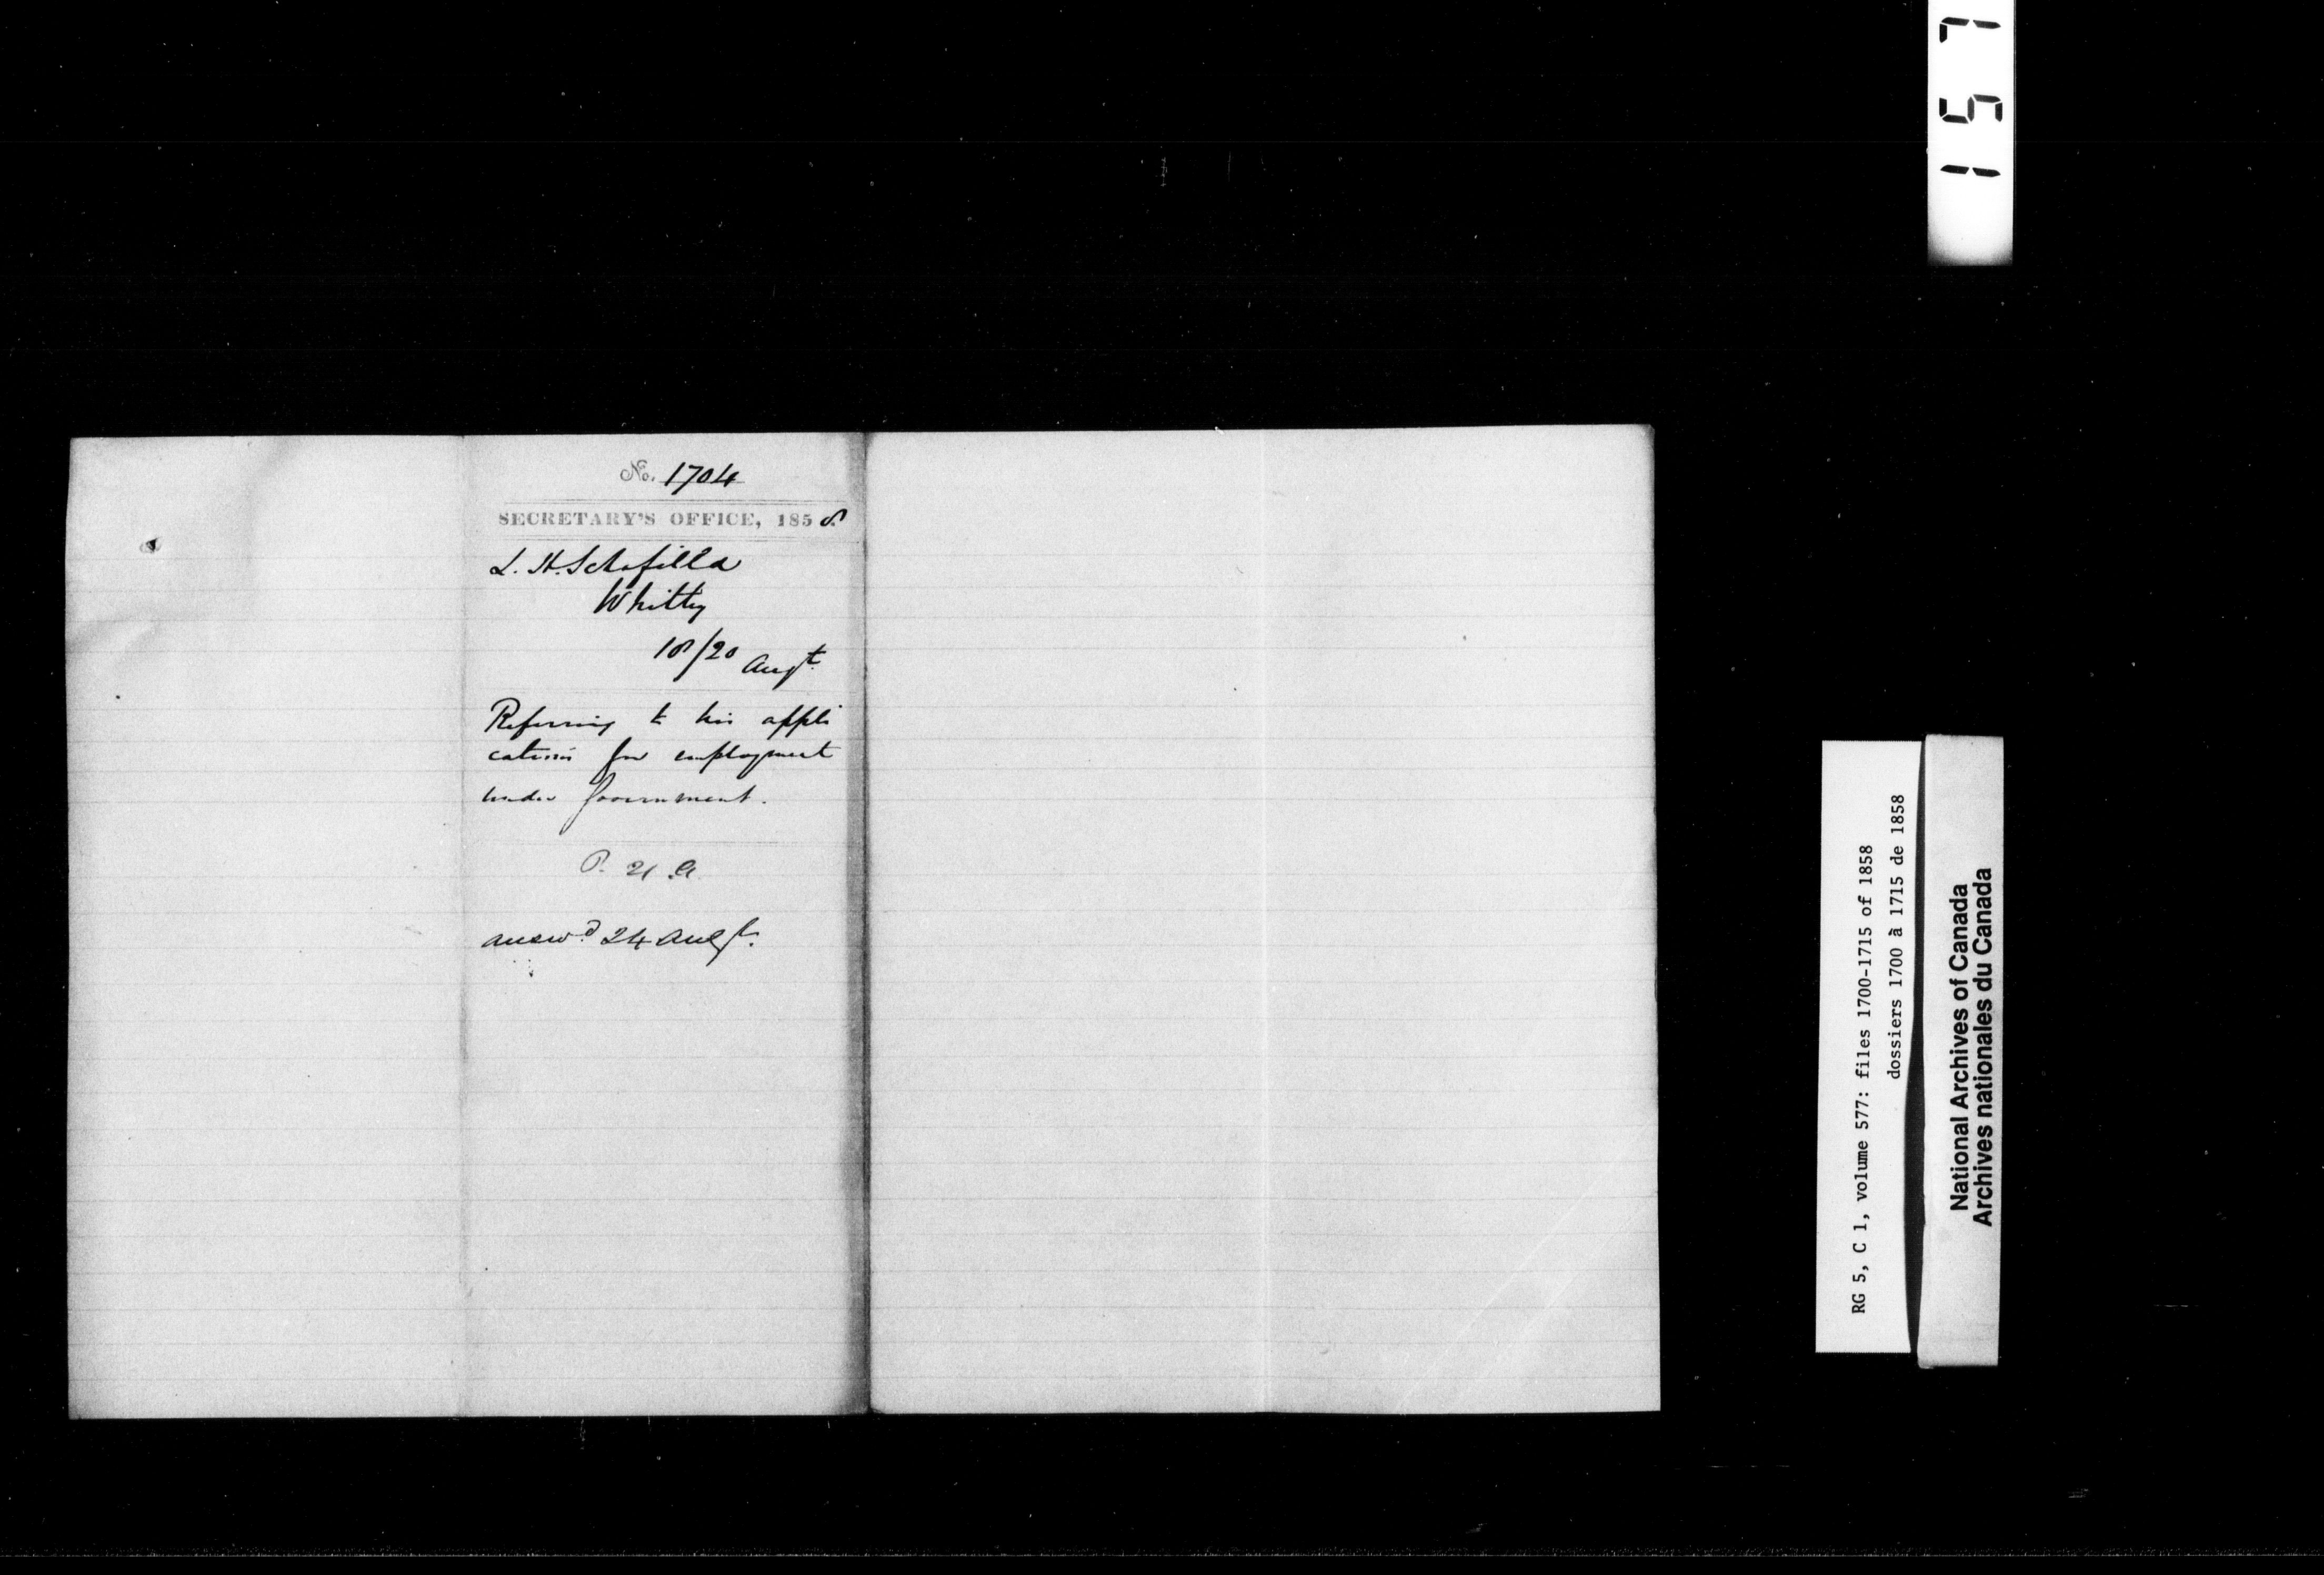 No. 1704
SECRETARY'S OFFICE, 1858
L. H. Schofield
Whitby
18/20 Augt.
Referring to his appli
cation for employment
under Government.
P. 21 A
answd. 24 Augt.
157
RG 5, C 1, volume 577: files 1700-1715 of 1858
dossiers 1700 à 1715 de 1858
National Archives of Canada
Archives nationales du Canada